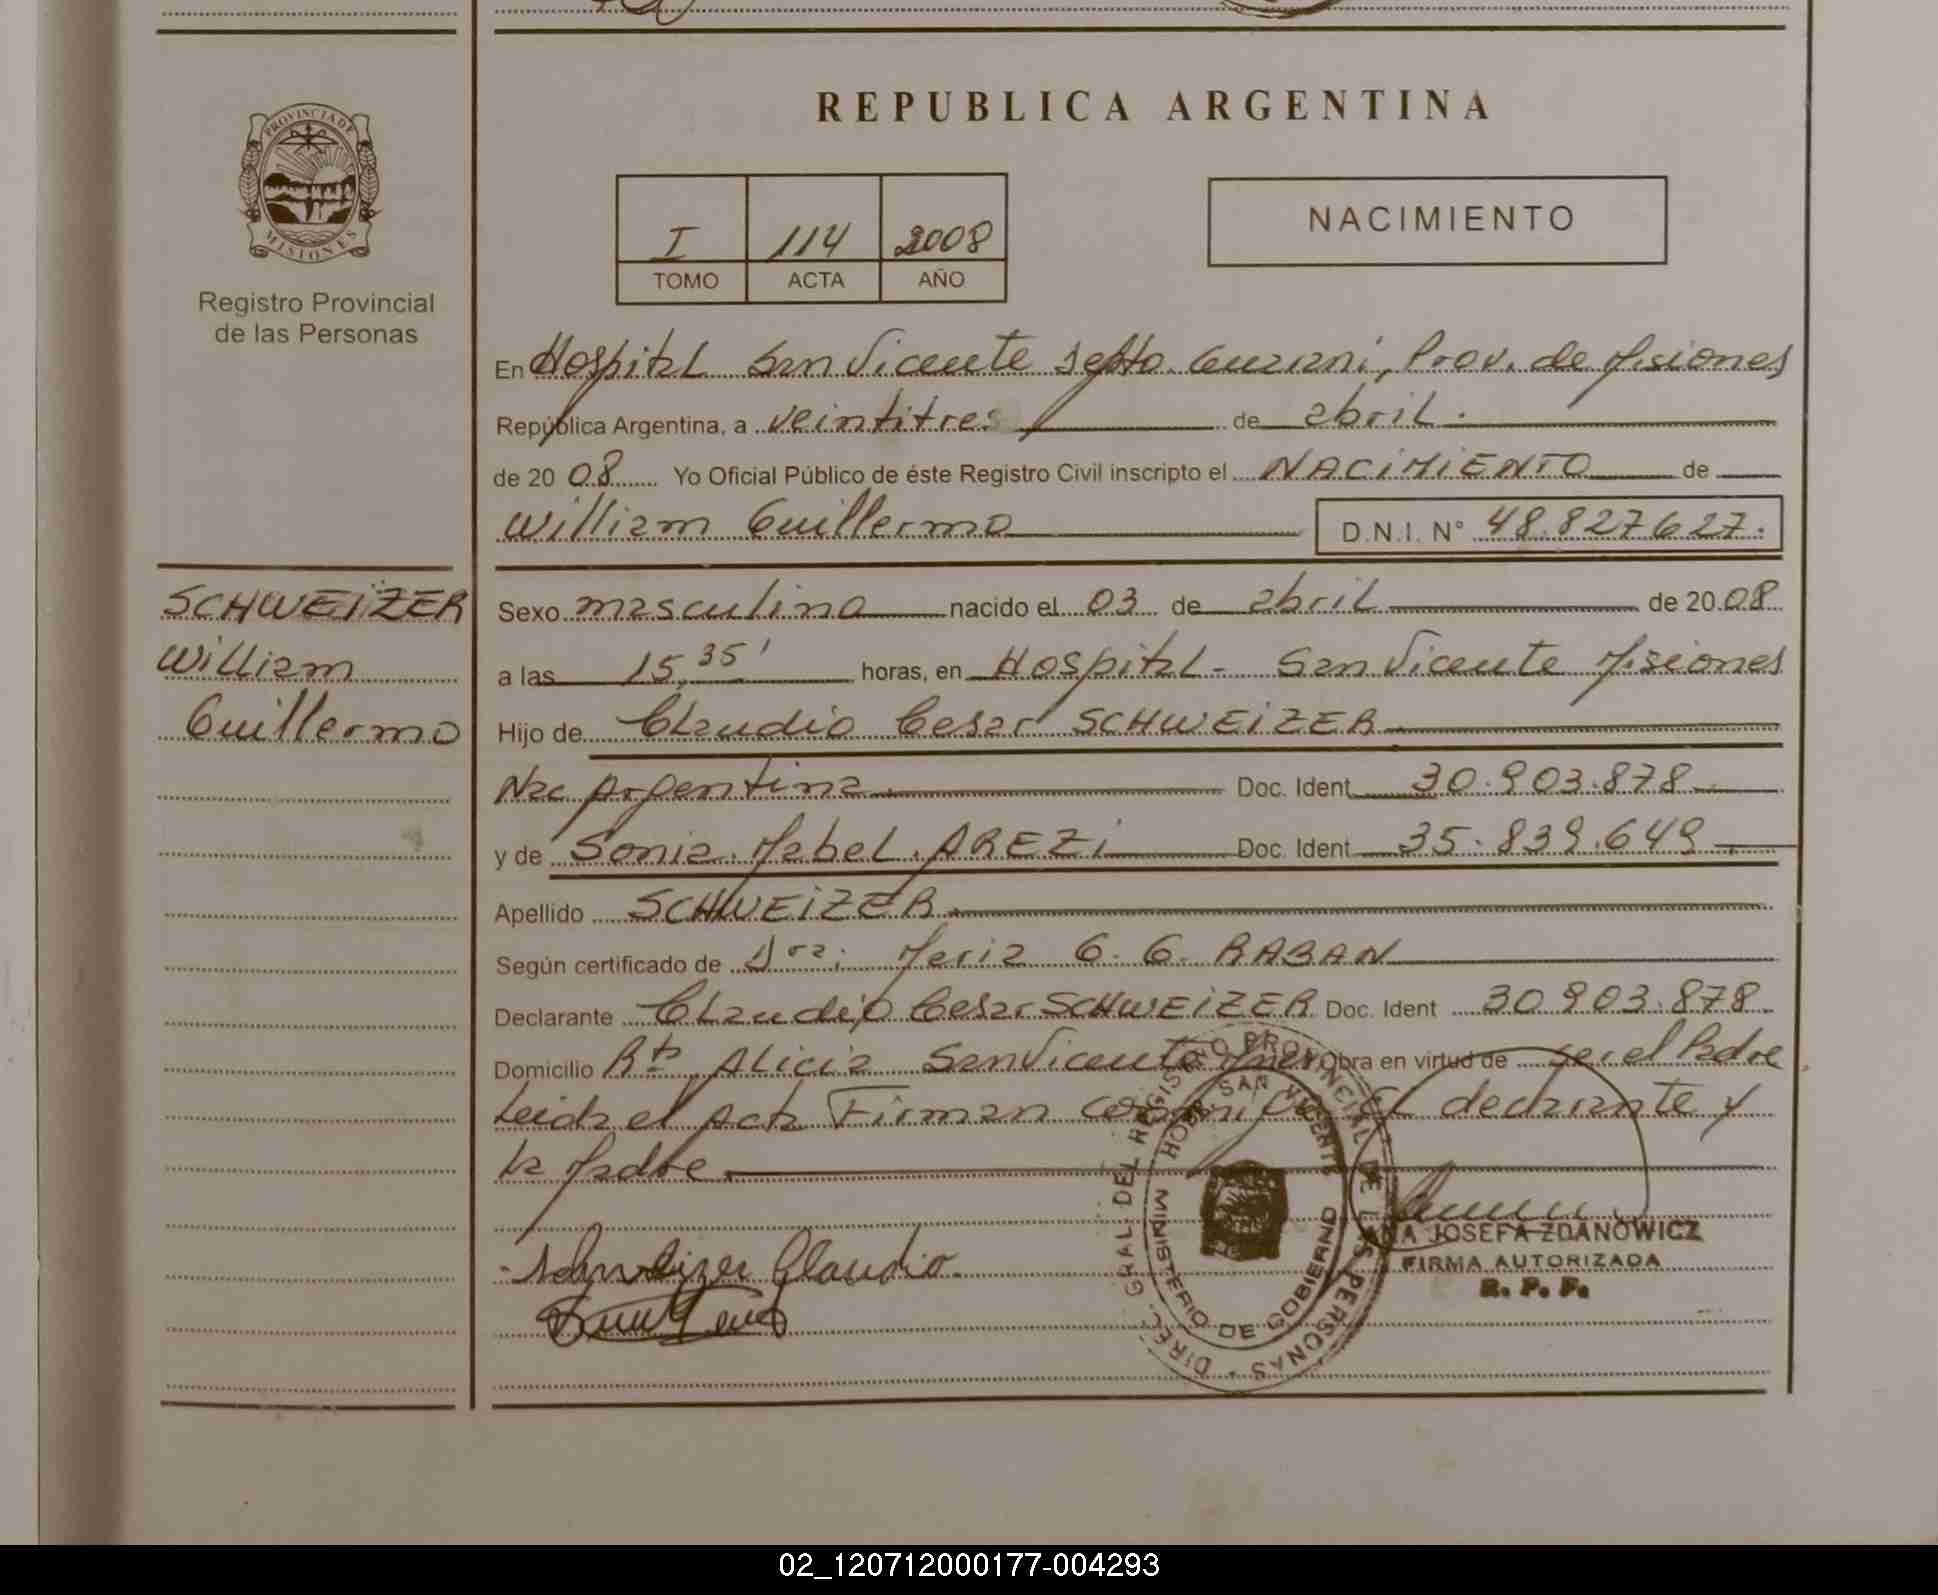 REPUBLICA ARGENTINA
PROVINCIA DE MISIONES
Registro Provincial
de las Personas
I 114 2008
TOMO ACTA AÑO
NACIMIENTO
En Hospital San Vicente Depto. Guarani, Prov. de Misiones
República Argentina, a veintitres de abril.
de 20 08 Yo Oficial Público de éste Registro Civil inscripto el NACIMIENTO de
William Guillermo D.N.I. N° 48.827627.
SCHWEIZER
William
Guillermo
Sexo masculino nacido el 03 de abril de 20 08
a las 15,35' horas, en Hospital - San Vicente Misiones
Hijo de Claudio Cesar SCHWEIZER
Nac Argentina Doc. Ident 30.903.878
y de Sonia Mabel AREZI Doc. Ident 35.839.649
Apellido SCHWEIZER
Según certificado de Dra. Maria G. G. RABAN
Declarante Claudio Cesar SCHWEIZER Doc. Ident 30903.878
Domicilio Rto Alicia San Vicente Obra en virtud de ser el Padre
Leida el Acta Firman conmigo el declarante y
la Madre
Schweizer Claudio
DIREC. GRAL. DEL REGISTRO PROVINCIAL DE LAS PERSONAS
SAN VICENTE
MINISTERIO DE GOBIERNO
JOSEFA ZDANOWICZ
FIRMA AUTORIZADA
R. P. P.
02_120712000177-004293